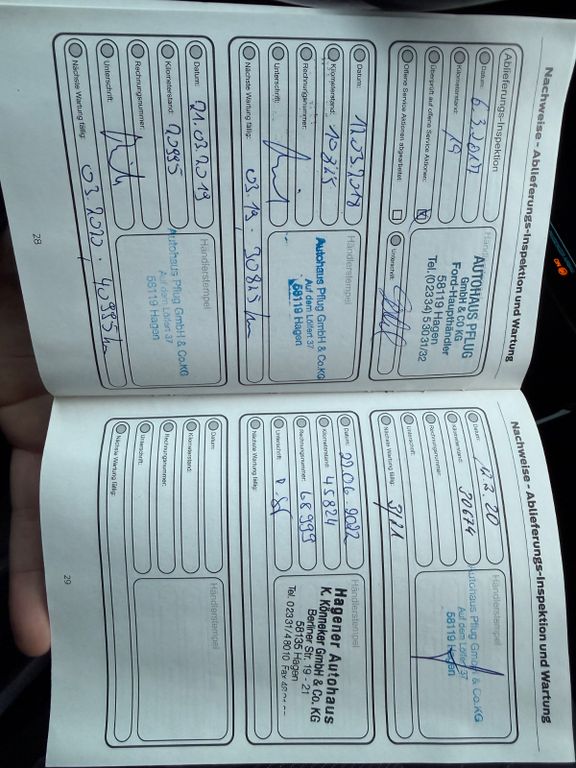 Nachweise - Ablieferungs-Inspektion und Wartung
Ablieferungs-Inspektion
Datum: 6.3.2017
Kilometerstand: 19
Überprüft auf offene Service Aktionen:
Offene Service Aktionen abgearbeitet:
AUTOHAUS PFLUG
GmbH & CO KG
Ford-Haupthändler
58119 Hagen
Tel. (02334) 53031/32
Unterschrift:
Datum: 12.03.2018
Kilometerstand: 10825
Rechnungsnummer:
Unterschrift:
Nächste Wartung fällig: 03.19 - 30815 km
Händlerstempel
Autohaus Pflug GmbH & Co.KG
Auf dem Lölfert 37
58119 Hagen
Datum: 21.03.2019
Kilometerstand: 20995
Rechnungsnummer:
Unterschrift:
Nächste Wartung fällig: 03.2020 - 40995 km
Händlerstempel
Autohaus Pflug GmbH & Co.KG
Auf dem Lölfert 37
58119 Hagen
28
Nachweise - Ablieferungs-Inspektion und Wartung
Datum: 12.3.20
Kilometerstand: 30674
Rechnungsnummer:
Unterschrift:
Nächste Wartung fällig: 3/21
Händlerstempel
Autohaus Pflug GmbH & Co.KG
Auf dem Lölfert 37
58119 Hagen
Datum: 29.06.2022
Kilometerstand: 45824
Rechnungsnummer: 68999
Unterschrift:
Nächste Wartung fällig:
Händlerstempel
Hagener Autohaus
K. Könneker GmbH & Co. KG
Berliner Str. 19 - 21
58135 Hagen
Tel. 02331/48010 Fax
Datum:
Kilometerstand:
Rechnungsnummer:
Unterschrift:
Nächste Wartung fällig:
Händlerstempel
29